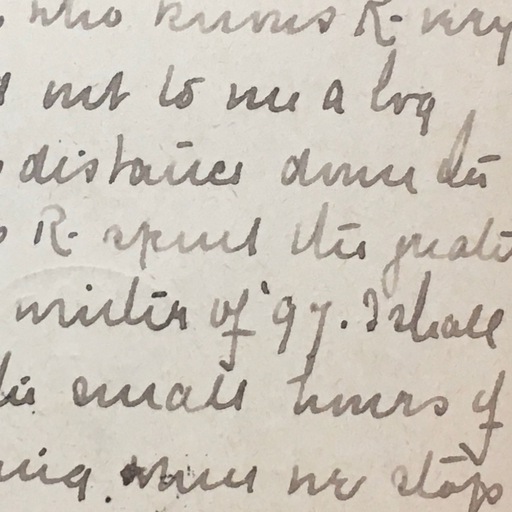 who knows R. very
out to me a log
distance down the
R. spent the greater
winter of '97. I shall
the small hours of
when we stop